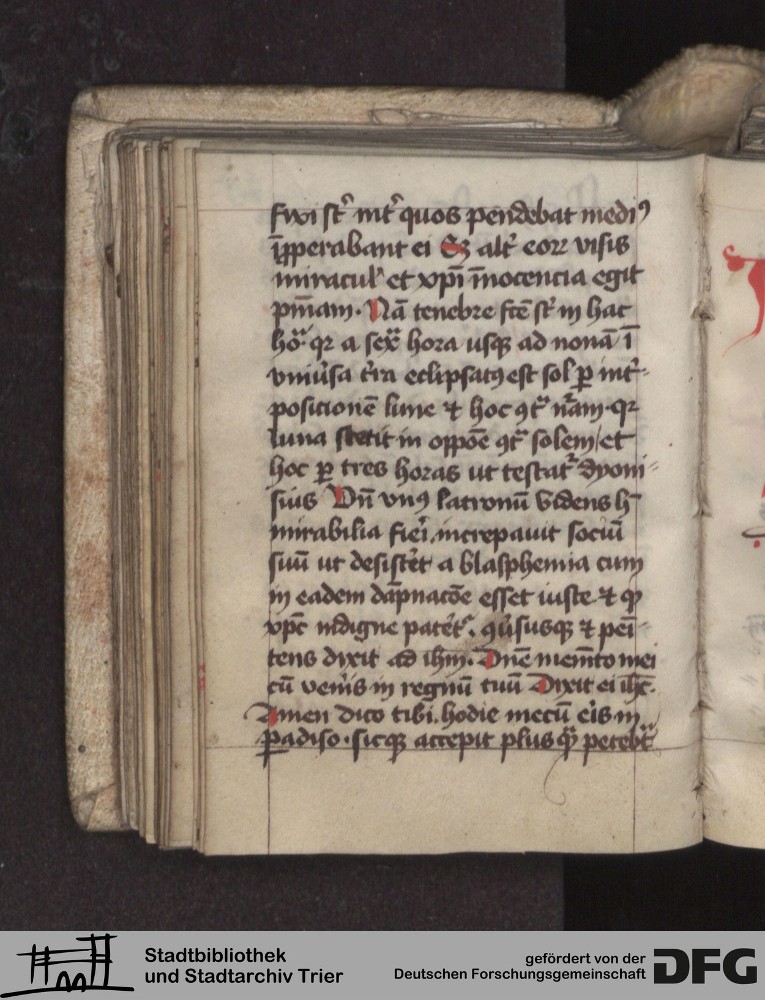 fixi st' int' quos pendebat medi9
īpperabant ei Sz alt' eorr visis
miracul' et xpī īnocencia egit
pnīam. Nā tenebre fcē st' in hac
ho'. qr a sex hora usq ad nonā ī
vniūsa t'ra eclipsat9 est sol p int'=
posicionē lune & hoc 9t' n'am. qr
luna stetit in oppōe 9t' solem / et
hoc p tres horas ut testat' dyoni=
sius Vn vn9 latronū videns h'
mirabilia fieri. increpauit sociū
suū ut desist'et a blasphemia cum
in eadem dāpnacōe esset iuste & q
xpc indigne pateret'. 9u'susq & peī=
tens dixit ad ihm. Dnē memēto mei
cū ven'is in regnū tuū Dixit ei ihc.
Amen dico tibi. hodie mecū er'is in
padiso. sicq accepit plusq petebat
Stadtbibliothek
und Stadtarchiv Trier
gefördert von der
Deutschen Forschungsgemeinschaft
DFG